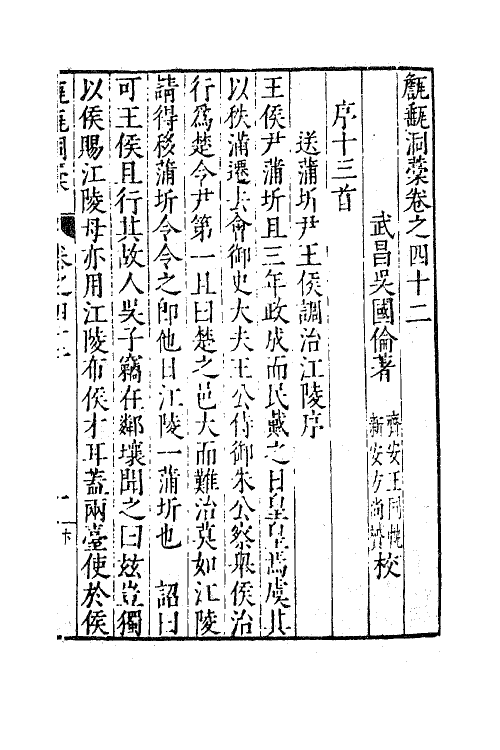 甔甀洞藁卷之四十二
武昌吳國倫著
新安方尚贇
校
序十三首
送蒲圻尹王侯調治江陵序
王侯尹蒲圻且三年政成而民戴之日皇皇焉虞其
以秩滿遷去會御史大夫王公侍御朱公察舉侯治
行爲楚令尹第一且曰楚之邑大而難治莫如江陵
請得移蒲圻令令之即他日江陵一蒲圻也 詔曰
可王侯且行其故人吳子竊在鄰壤聞之曰兹豈獨
以侯賜江陵母亦用江陵布侯才耳蓋兩臺使於侯
甔甀洞藁
卷之四十二
一